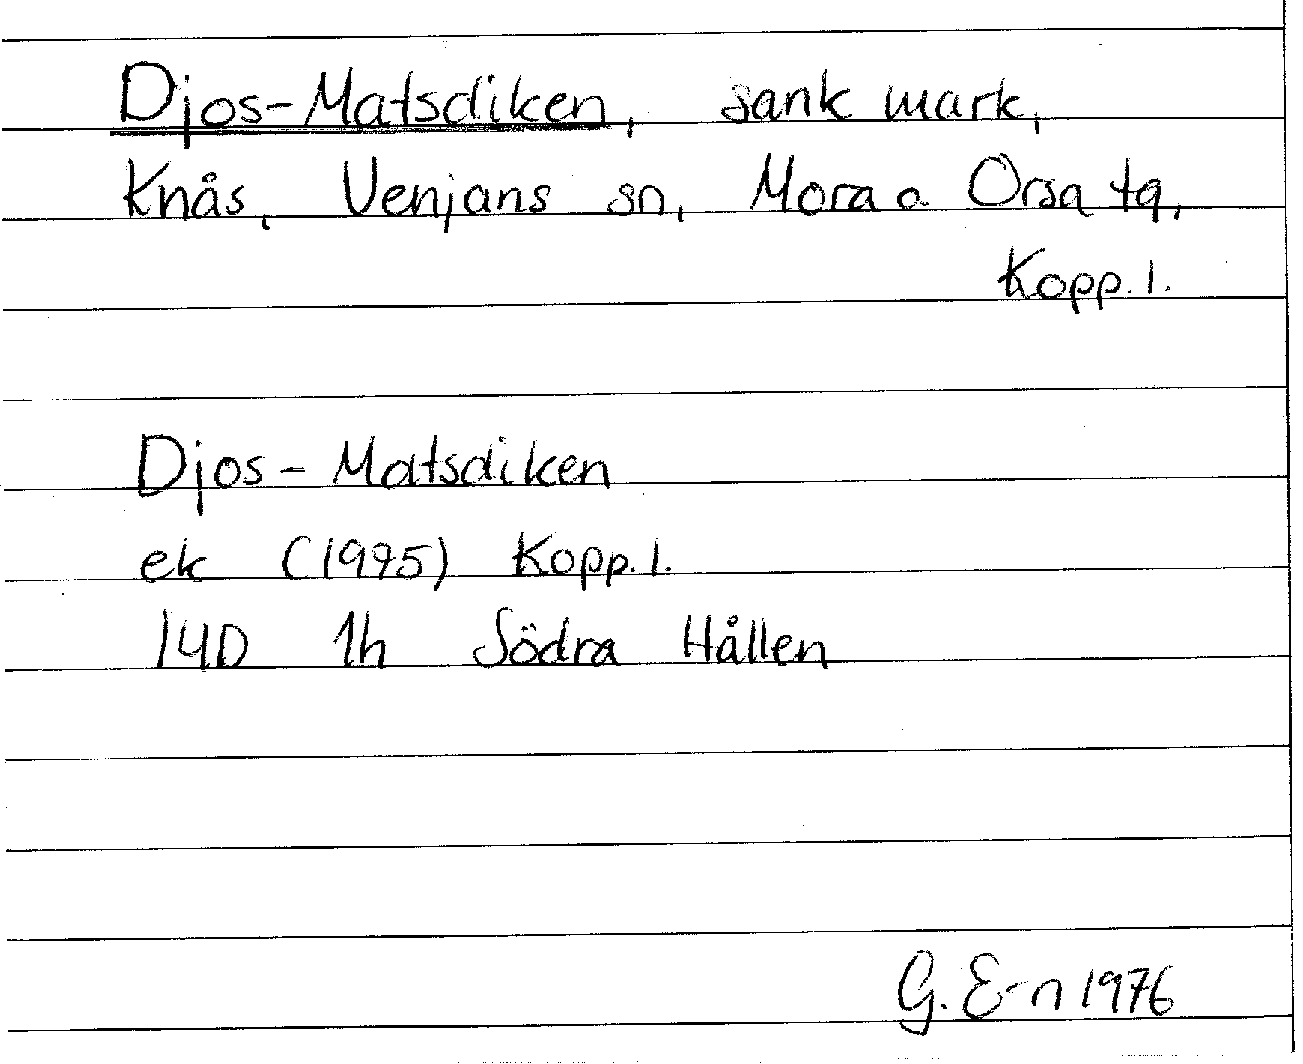 Djos-Matsdiken, sank mark,
Knås, Venjans sn, Mora o Orsa tg,
Kopp. l.
Djos-Matsdiken
ek (1975) Kopp. l.
14D 1h Södra Hållen
G. E-n 1976